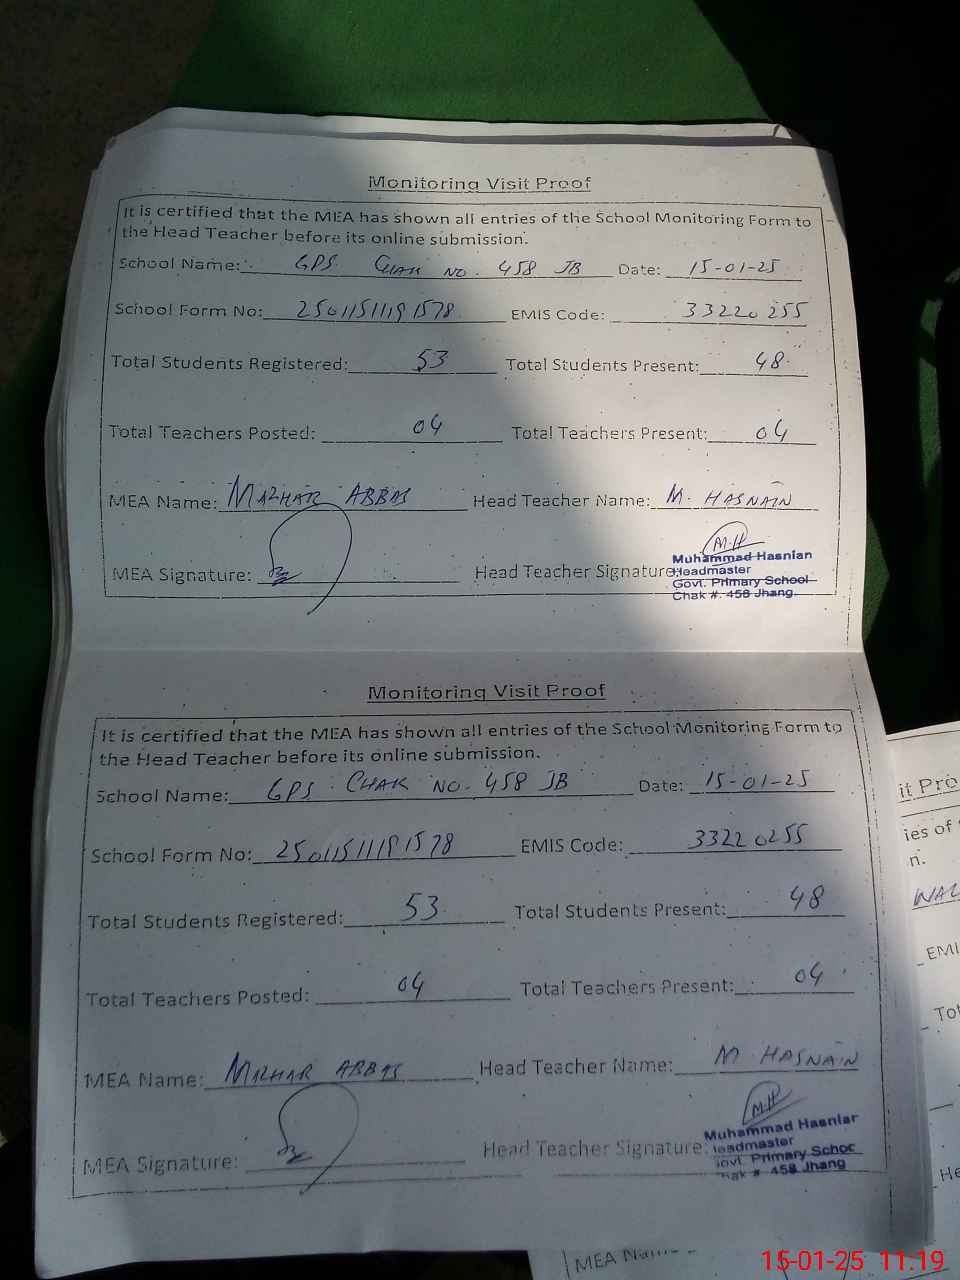 Monitoring Visit Proof
It is certified that the MEA has shown all entries of the School Monitoring Form to
the Head Teacher before its online submission.
School Name: GPS. CHAK NO. 458 JB Date: 15-01-25
School Form No: 25011511191578 EMIS Code: 33220255
Total Students Registered: 53 Total Students Present: 48
Total Teachers Posted: 04 Total Teachers Present: 04
MEA Name: MAZHAR ABBAS Head Teacher Name: M. HASNAIN
M.H
MEA Signature: Head Teacher Signature:
Muhammad Hasnian
Headmaster
Govt. Primary School
Chak #. 458 Jhang.
Monitoring Visit Proof
It is certified that the MEA has shown all entries of the School Monitoring Form to
the Head Teacher before its online submission.
School Name: GPS. CHAK NO. 458 JB Date: 15-01-25
School Form No: 25011511191578 EMIS Code: 33220255
Total Students Registered: 53 Total Students Present: 48
Total Teachers Posted: 04 Total Teachers Present: 04
MEA Name: MAZHAR ABBAS Head Teacher Name: M HASNAIN
M.H
MEA Signature: Head Teacher Signature:
Muhammad Hasnian
eadmaster
ovt. Primary Schoo
hak # 458 Jhang
it Pro
ies of
n.
EMI
Tot
He
MEA Nam
15-01-25 11.19